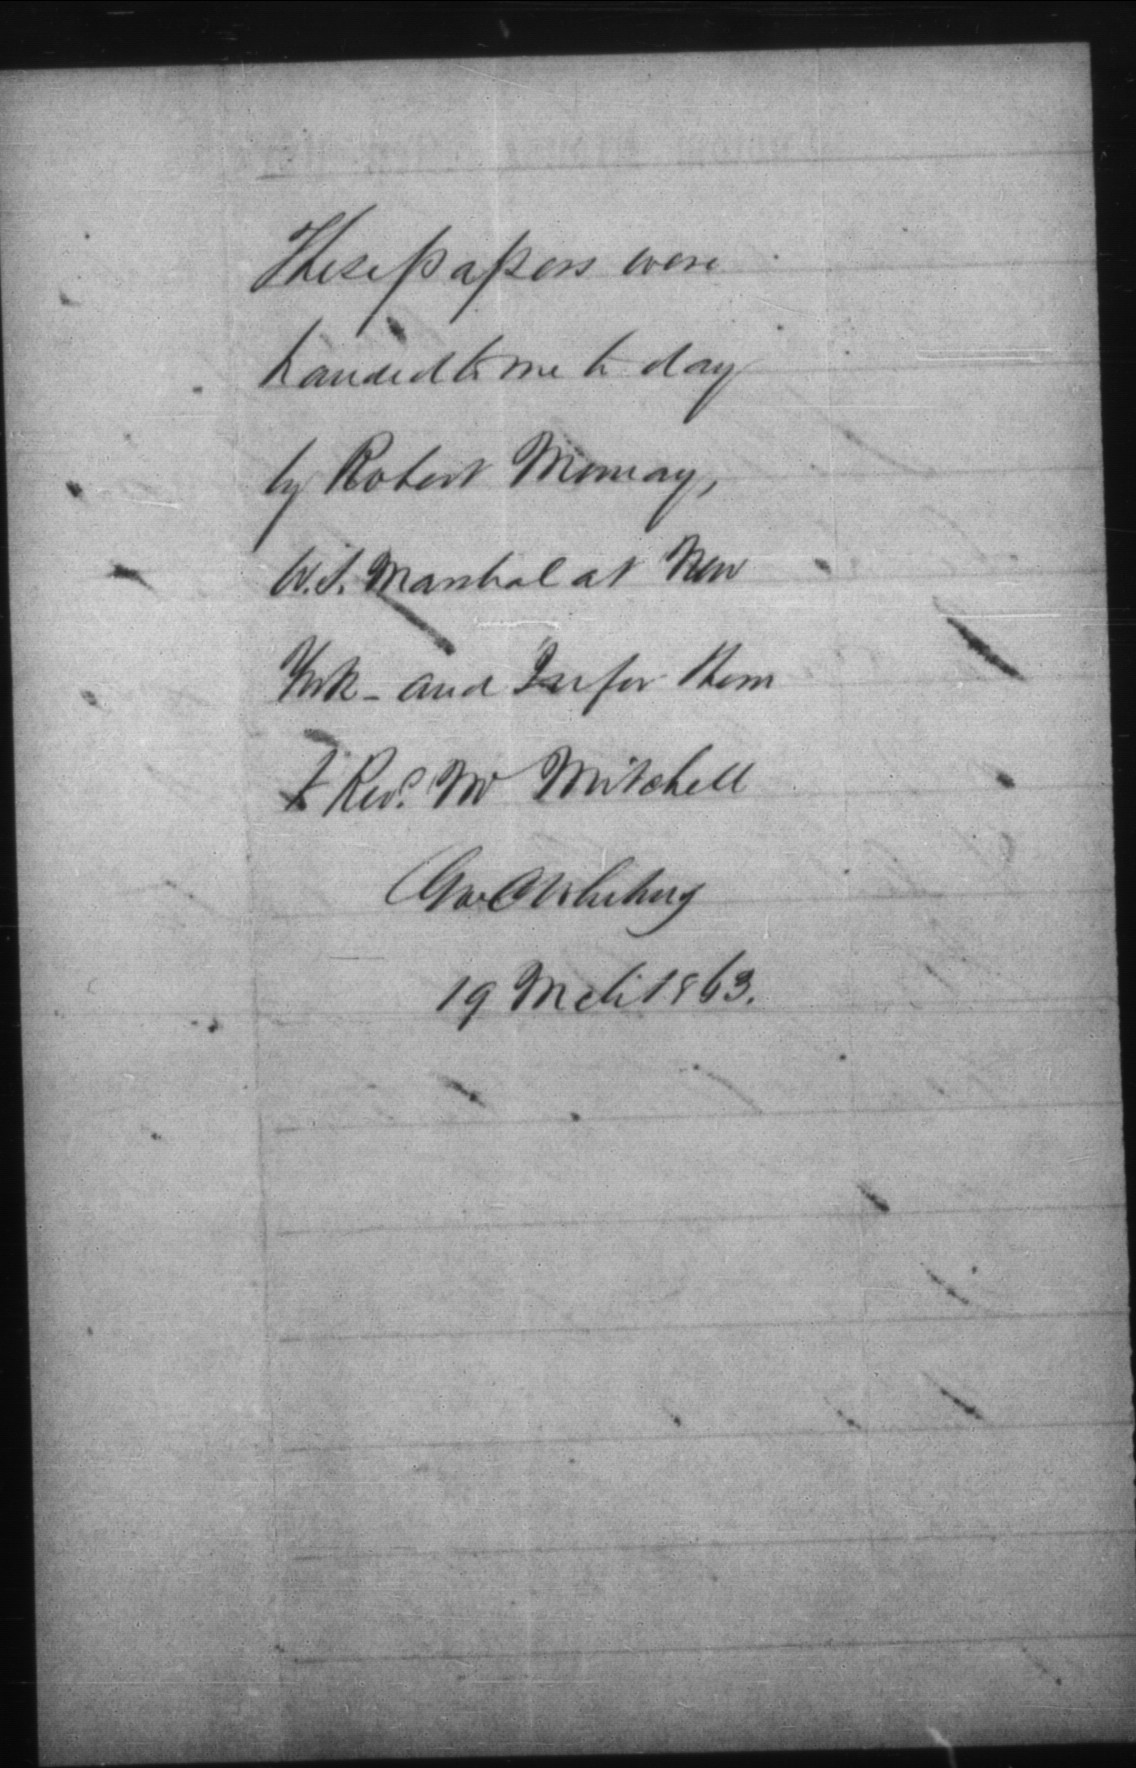 These papers were
handed to me to day
by Robert Murray,
U.S. Marshal at New
York - and I refer them
to Rev.d Mr Mitchell
Geo C Whiting
19 Mch 1863.